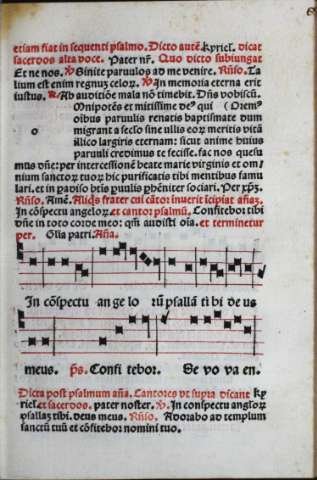 etiam fiat in sequenti psalmo. Dicto autē kyriel. dicat
sacerdos alta voce. Pater nr̄. Quo dicto subiungat
Et ne nos. ℣ Sinite paruulos ad me venire. Rn̄so. Ta
lium est enim regnuȝ celoꝝ. ℣ In memoria eterna erit
iustus. ℟ Ab auditiōe mala nō timebit. Dn̄s vobiscū.
Mnipotēs et mitissime deꝰ qui
o oibus paruulis renatis baptismate dum
migrant a seclo sine ullis eoꝝ meritis vitā
illico largiris eternam: sicut animē huius
paruuli credimus te fecisse. fac nos quesu
mus dn̄e: per intercessionē beate marie virginis et om
nium sanctoꝝ tuoꝝ hic purificatis tibi mentibus famu
lari. et in padiso btīs puulis phēniter sociari. Per
Rn̄so. Amē.
In cōspectu angeloꝝ. et cantor psalmū. Confitebor tibi
dn̄e in toto corde meo: qm̄ audisti oīa. et terminetur
per. Glia patri. Ana.
In cōspectu an ge lo rū psallā ti bi de us
meus. p̄s. Confi tebor. Se vo va en.
Dicta post psalmum an̄a. Cantores vt supra dicant ky
riel. et sacerdos. pater noster. ℣. In conspectu angloꝝ
psallaȝ tibi. deus meus. Rn̄so. Adorabo ad templum
sanctū tuū et cōfitebor nomini tuo.